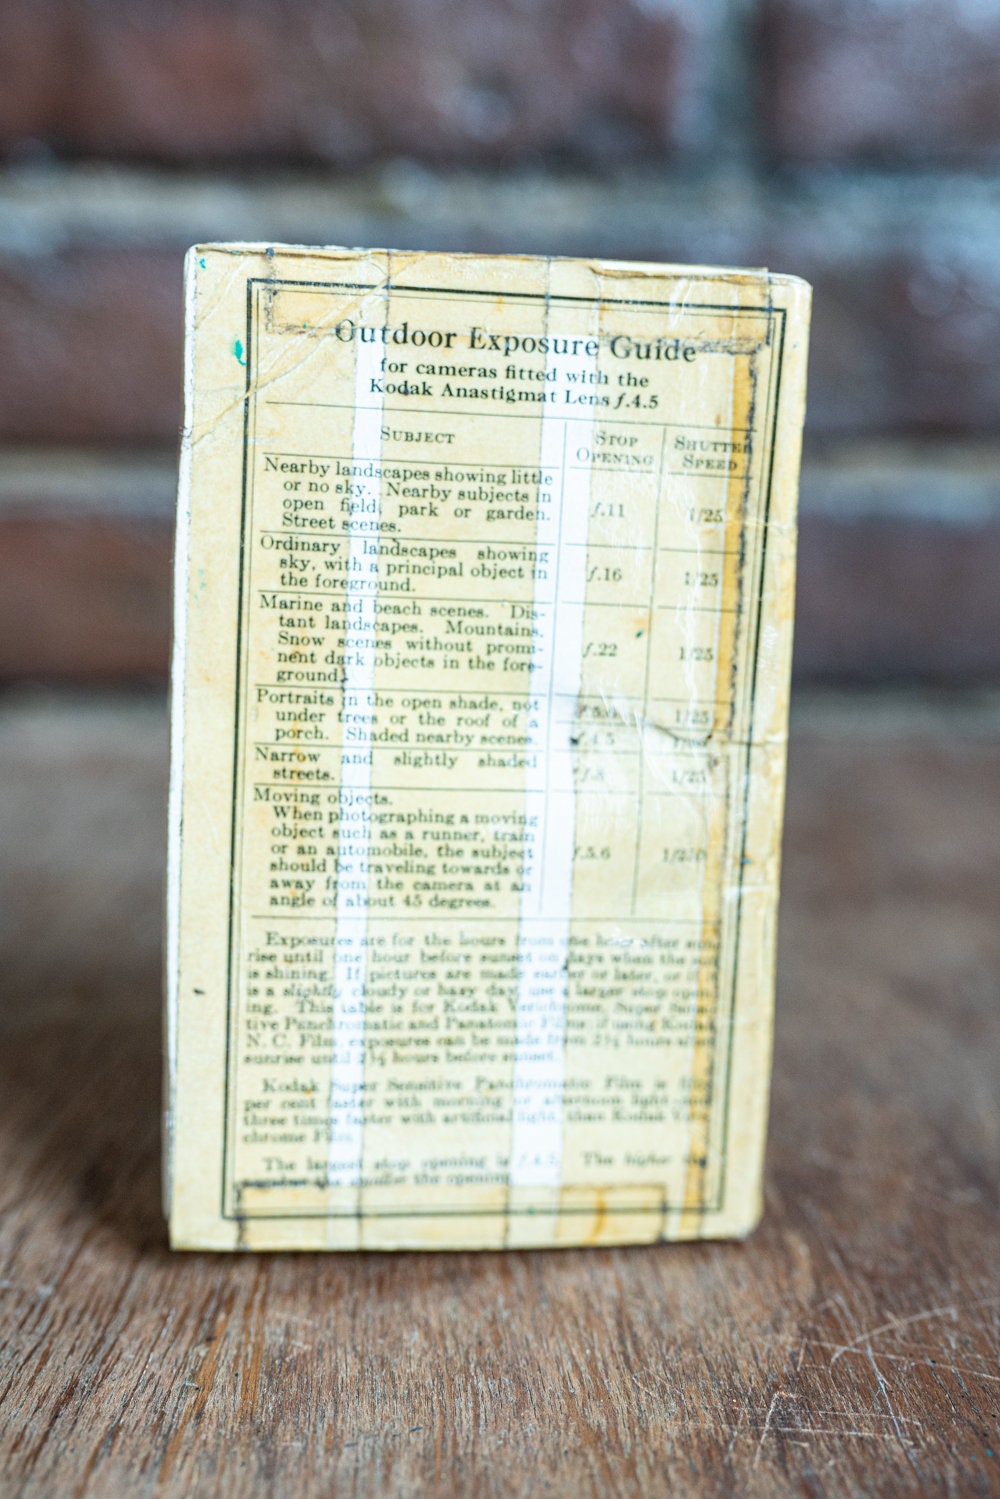 Outdoor Exposure Guide
for cameras fitted with the
Kodak Anastigmat Lens f.4.5
SUBJECT STOP OPENING SHUTTER SPEED
Nearby landscapes showing little
or no sky. Nearby subjects in
open field, park or garden.
Street scenes.
f.11 1/25
Ordinary landscapes showing
sky, with a principal object in
the foreground.
f.16 1/25
Marine and beach scenes. Dis-
tant landscapes. Mountains.
Snow scenes without promi-
nent dark objects in the fore-
ground.
f.22 1/25
Portraits in the open shade, not
under trees or the roof of a
porch. Shaded nearby scenes.
1/25
f.4.5
Narrow and slightly shaded
streets.
f.8 1/25
Moving objects.
When photographing a moving
object such as a runner, train
or an automobile, the subject
should be traveling towards or
away from the camera at an
angle of about 45 degrees.
f.5.6 1/250
Exposures are for the hours from one hour after sun-
rise until one hour before sunset on days when the sun
is shining. If pictures are made earlier or later, or if it
is a slightly cloudy or hazy day, use a larger stop open-
ing. This table is for Kodak Verichrome, Super Sensi-
tive Panchromatic and Panatomic Films; if using Kodak
N. C. Film, exposures can be made from 2½ hours after
sunrise until 2½ hours before sunset.
Kodak Super Sensitive Panchromatic Film is fifty
per cent faster with morning or afternoon light and
three times faster with artificial light, than Kodak Veri-
chrome Film.
The largest stop opening is f.4.5. The higher the
number the smaller the opening.